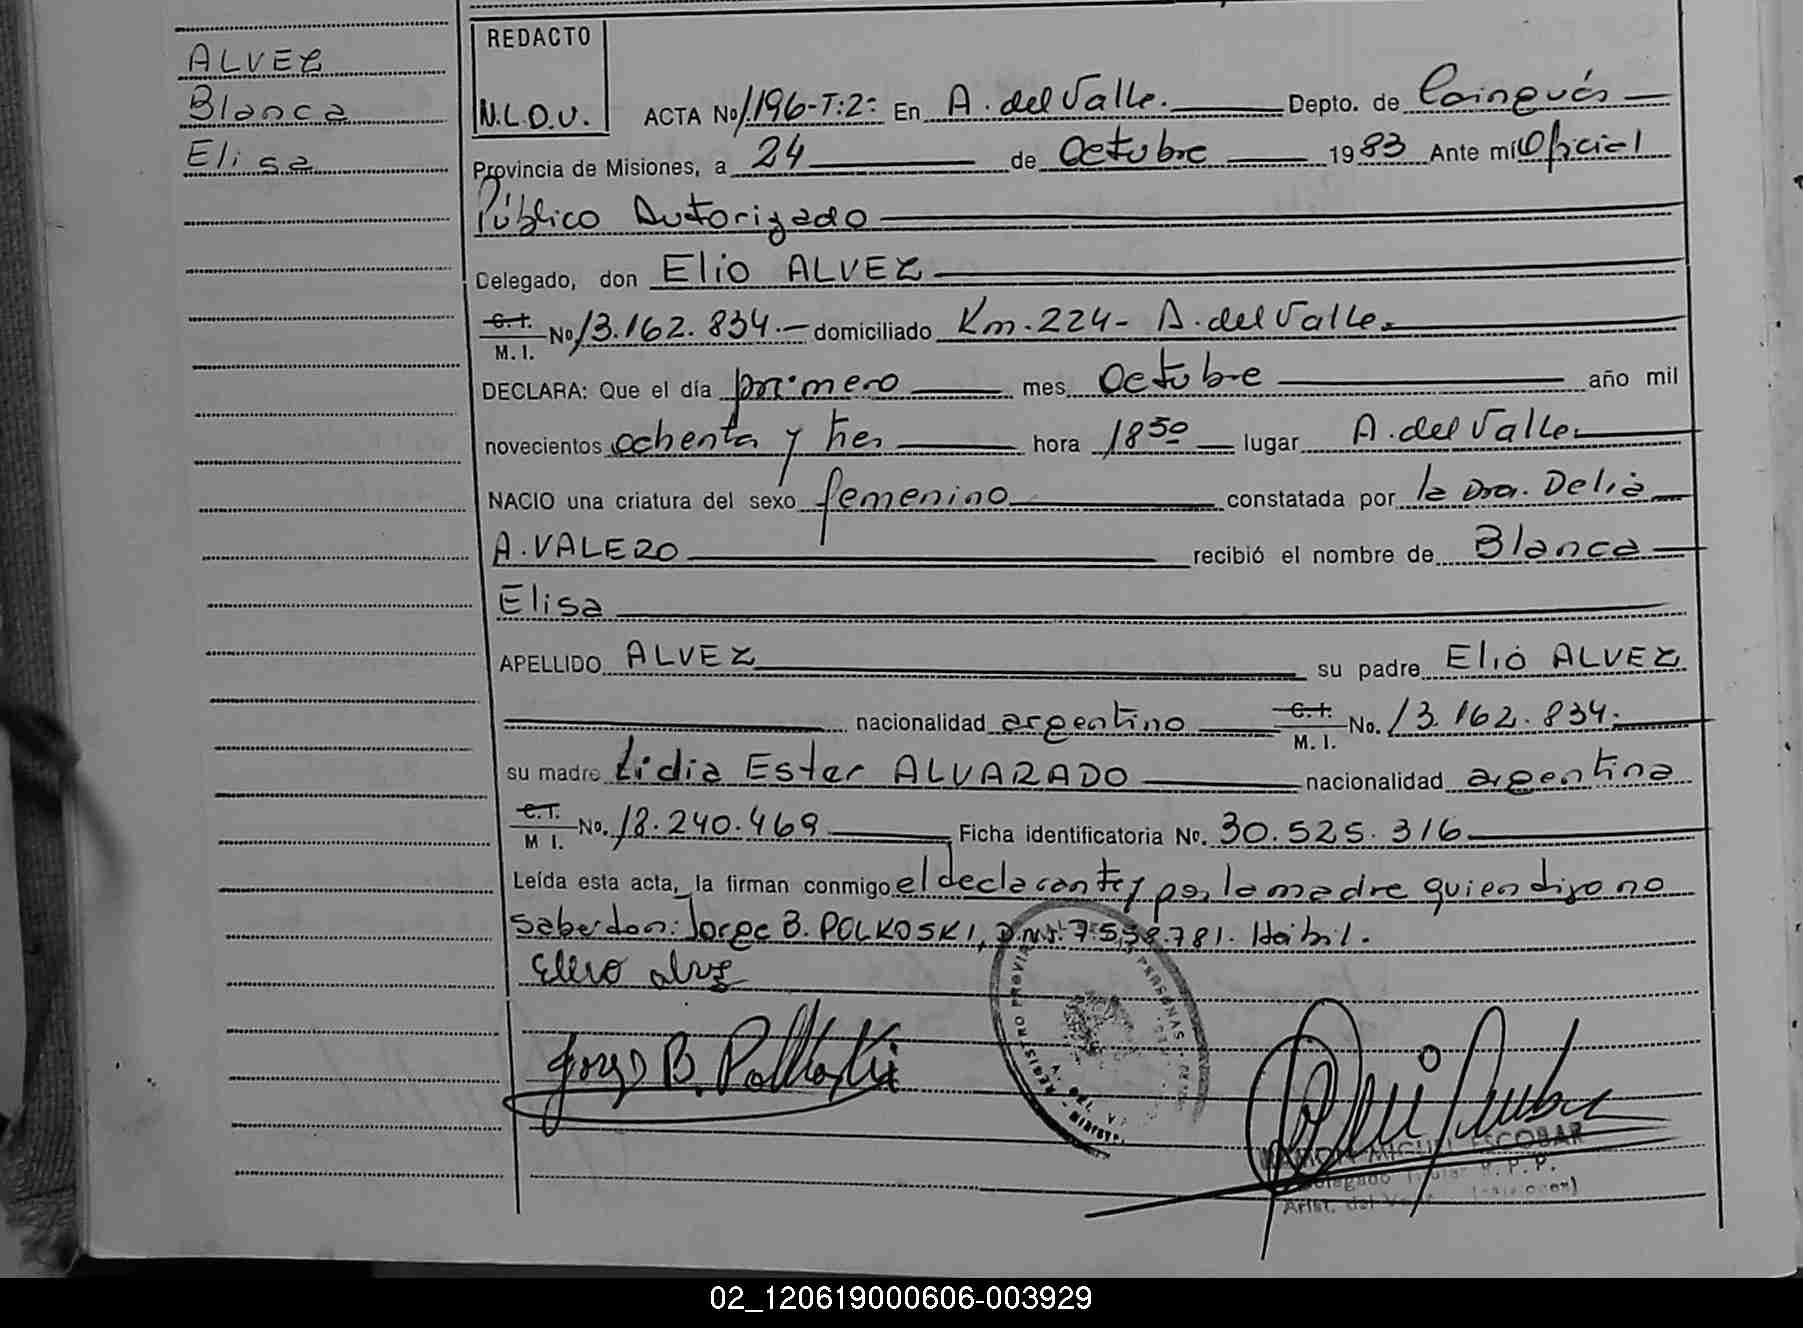 ALVEZ
Blanca
Elisa
REDACTO
N.L.D.V.
ACTA No 1196-T:2: En A. del Valle. Depto. de Cainguás
Provincia de Misiones, a 24 de Octubre 1983 Ante mí Oficial
Público Autorizado
Delegado, don Elio ALVEZ
C.I. M.I. No 13.162.834.- domiciliado Km.224- A. del Valle.
DECLARA: Que el día primero mes Octubre año mil
novecientos ochenta y tres hora 18 50 lugar A. del Valle.
NACIO una criatura del sexo femenino constatada por la Dra. Delia
A. VALERO recibió el nombre de Blanca
Elisa
APELLIDO ALVEZ su padre Elio ALVEZ
nacionalidad argentino C.I. M.I. No. 13.162.834.
su madre Lidia Ester ALVARADO nacionalidad argentina
C.I. M I. No. 18.240.469 Ficha identificatoria No. 30.525.316
Leída esta acta, la firman conmigo el declarante y por la madre quien dijo no
saber don: Jorge B. POLKOSKI, D.N.I. 7.558.781. Hábil.
Jorge B. Polkoski
REGISTRO PERSONAS
RAMON MIGUEL ESCOBAR
Delegado Titular R. P. P.
Arist. del Valle (Misiones)
02_120619000606-003929